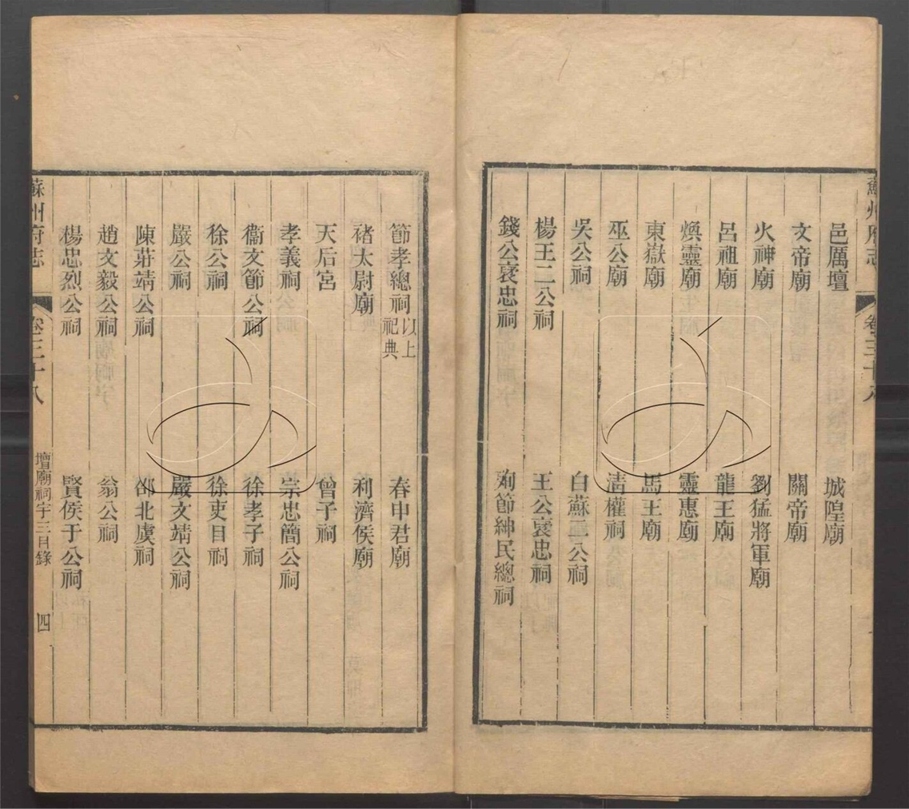 蘇州府志 卷三十八
邑厲壇 城隍廟
文帝廟 關帝廟
火神廟 劉猛將軍廟
呂祖廟 龍王廟
煥靈廟 靈惠廟
東嶽廟 馬王廟
巫公廟 清權祠
吳公祠 白蘇二公祠
楊王二公祠 王公褒忠祠
錢公褒忠祠 殉節紳民總祠
節孝總祠以上祀典 春申君廟
褚太尉廟 利濟侯廟
天后宮 曾子祠
孝義祠 宗忠簡公祠
衞文節公祠 徐孝子祠
徐公祠 徐吏目祠
嚴公祠 嚴文靖公祠
陳莊靖公祠 邵北虞祠
趙文毅公祠 翁公祠
楊忠烈公祠 賢侯于公祠
蘇州府志 卷三十八 壇廟祠宇三目錄 四